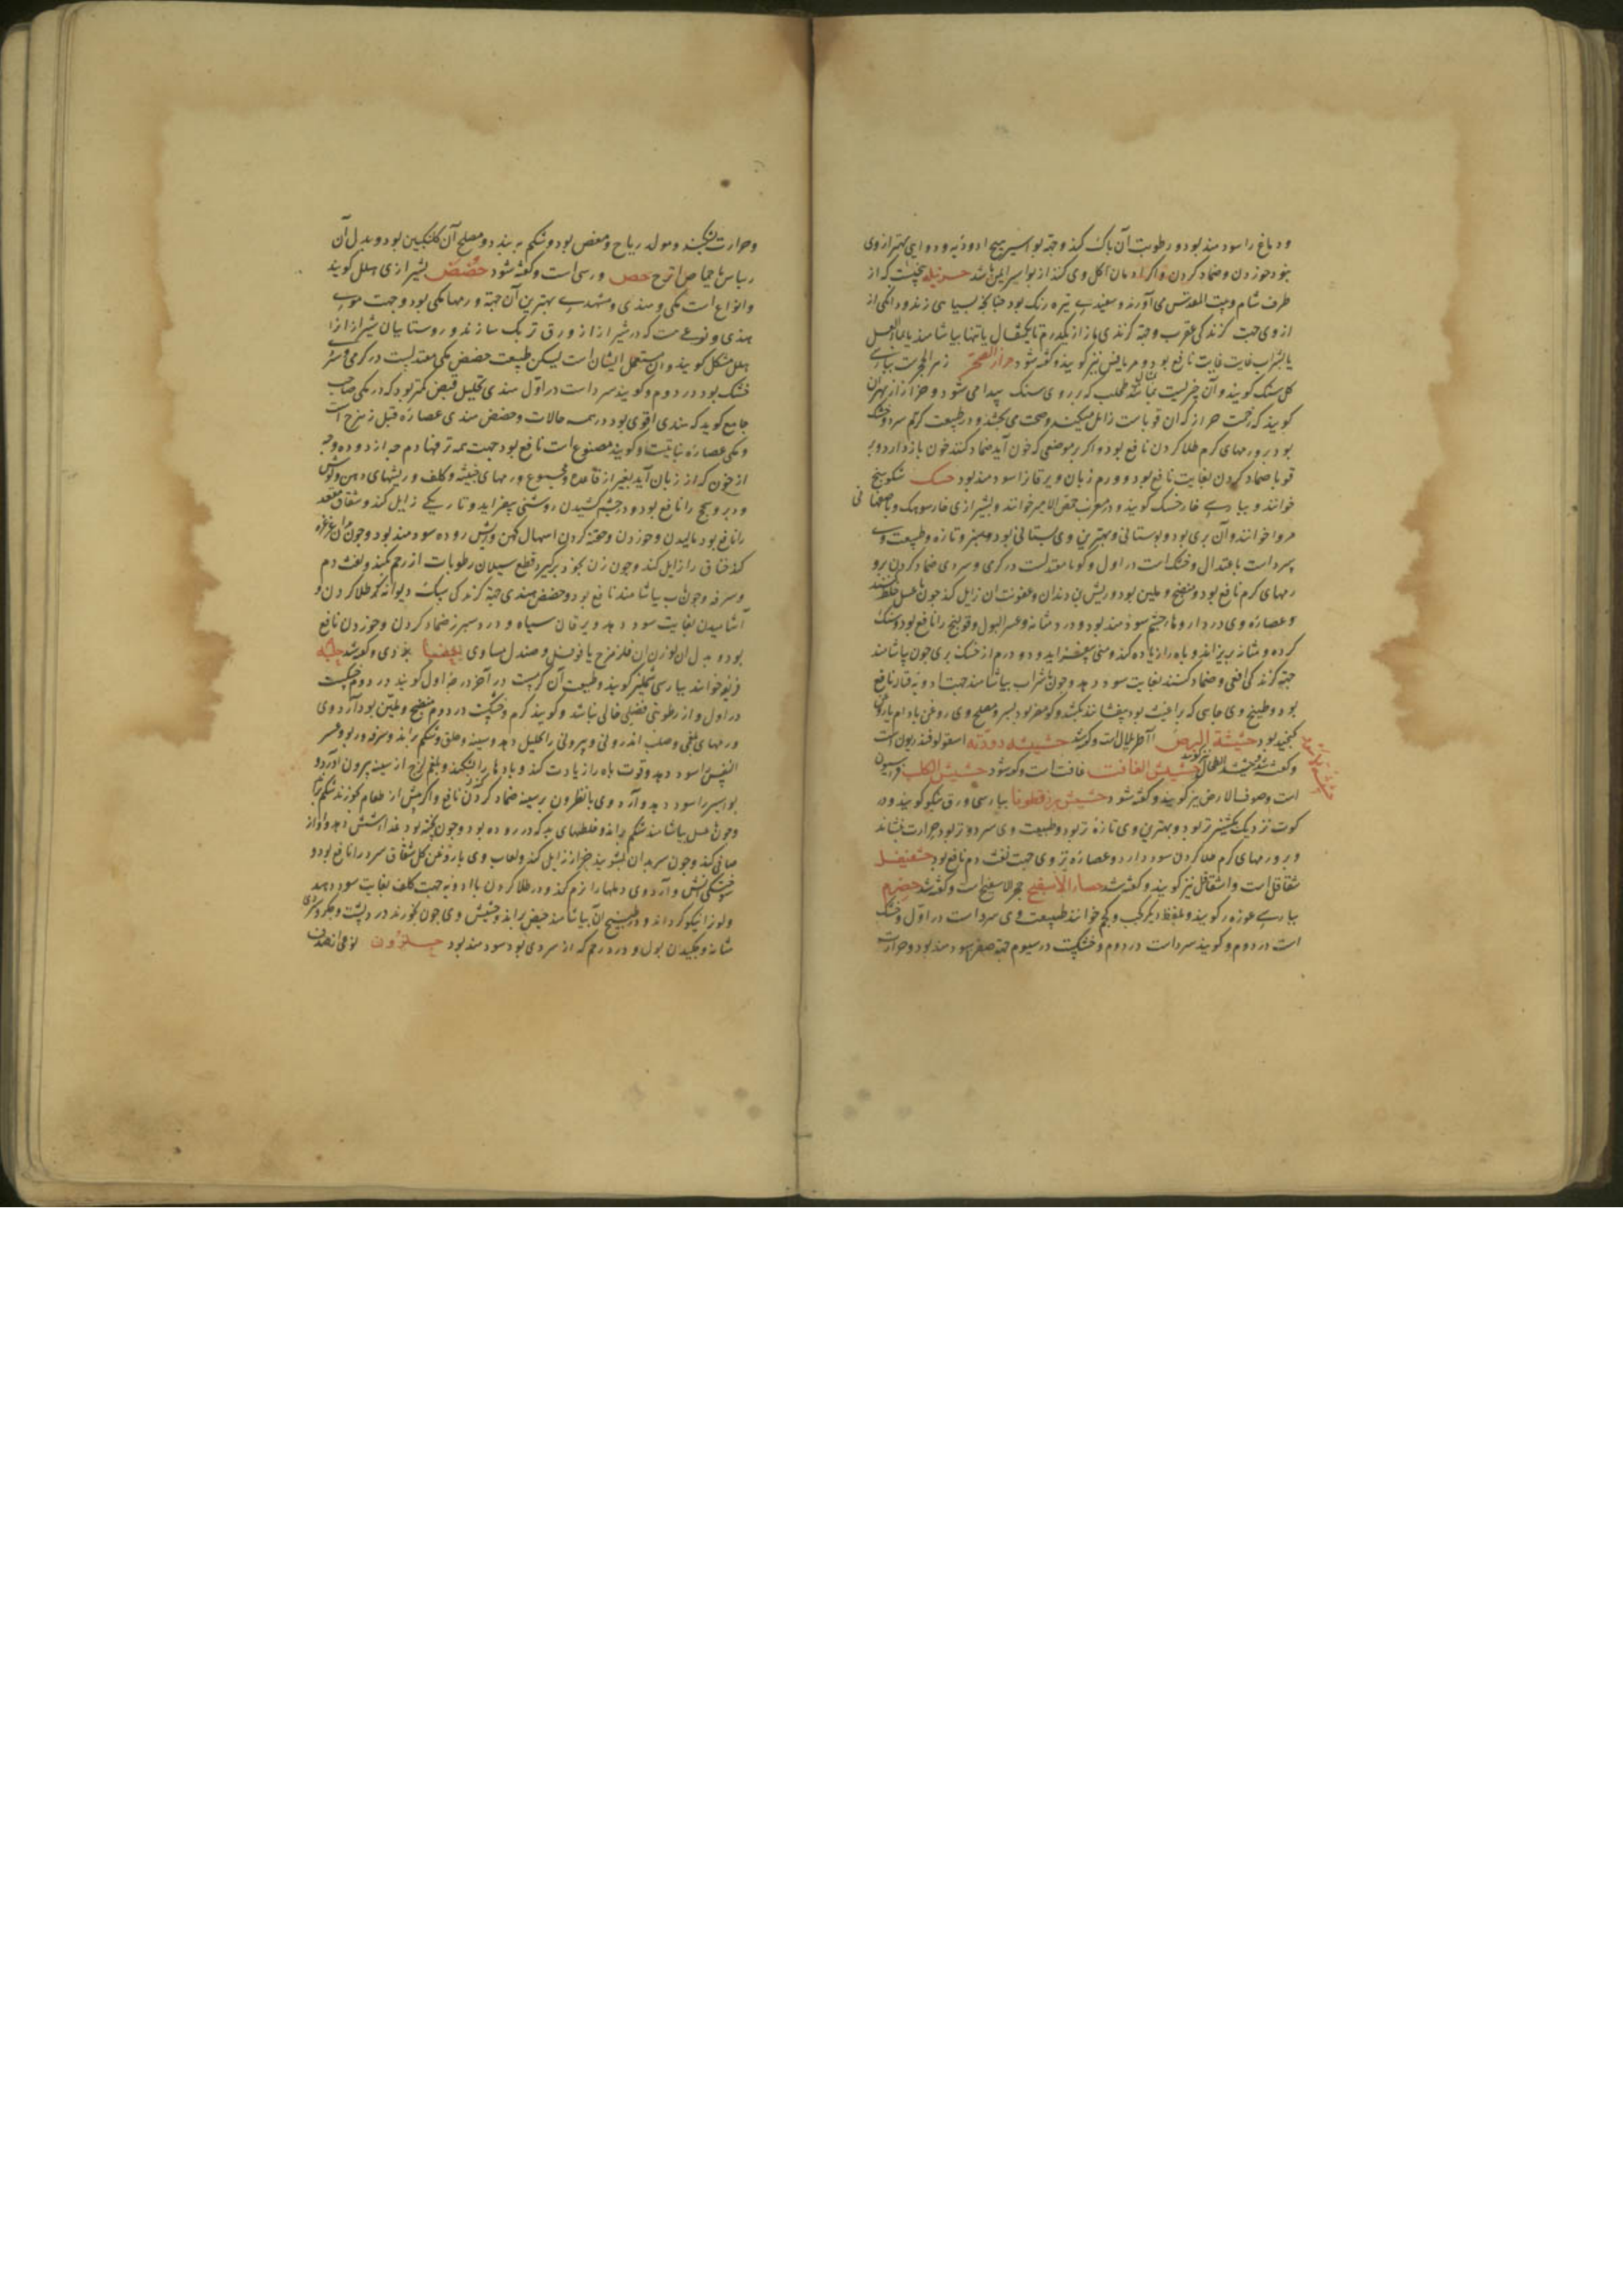 ودماغ را سودمند بود و رطوبت آن پاک کند و جهة بواسیر هیچ ادویه و دوایی بهتر از وی
نبود خوردن و ضماد کردن و اکر ادمان اکل وی کند از بواسیر ایمن باشد حزنبله بیخیست که از
طرف شام و بیت المقدس می آورند و سفیدی تیره رنک بود
از وی جهت کزندکی عقرب و جهة کزندکی مار از یکدرم تا یکمثقال یا تنها بیاشامند یا بماء العسل
یا بشراب غایت نافع بود و مریافیس نیز کویند و گفته شود حزاز الصخر زهر الحجرست بپارسی
کل سنک کویند و آن چیزیست مانند طحلب که بر روی سنک پیدا می شود و حزاز از بهر آن
کویند که زحمت حزاز که آن قوباست زایل میکند و صحت می بخشد و در طبیعت کرم سرد و خشک
بود بر ورمهای کرم طلا کردن نافع بود و اکر بر موضعی که خون آید ضماد کنند خون باز دارد و بر
قوبا ضماد کردن بغایت نافع بود و ورم زبان و یرقان را سودمند بود حسک شکوهنج
خوانند و بپارسی خار خسک کویند و در مغرب حمص الامیر خوانند و بشیرازی خار سوهک و باصفهانی
خوانند و آن بری بود و بوستانی و بهترین وی بستانی بود و سبز و تازه و طبیعت وی
سرد است باعتدال و خشک است در اول و کویند معتدلست در کرمی و سردی ضماد کردن بر و
رمهای کرم نافع بود و منضج و ملین بود و ریش بن دندان و عفونت آن زایل کند چون با عسل خلط کنند
و عصاره وی در داروها چشم سودمند بود و درد مثانه و عسر البول و قولنج را نافع بود و سنک
کرده و مثانه بریزاند و باه را زیاده کند و منی بیفزاید و دو درم از خسک بری چون بیاشامند
جهة کزندکی افعی و ضماد کنند بغایت سود دهد و چون با شراب بیاشامند جهت ادویه قتاله نافع
بود و طبیخ وی جایی که براغیث بود بیفشانند بکشد و کویند مضر بود بسر و مصلح وی روغن بادام یا روغن
کنجد بود حشیشة البرص آاطریلال است و گفته شد حشیشه دودته اسقولوفندریون است
و گفته شد و حشیشة الطحال نیز کویند حشیش الغافت غافت است و گفته شود حشیش الکلب فراسیون
است و صوف الارض نیز کویند و گفته شود حشیش بزرقطونا بپارسی ورق شکو کویند و در
قوت نزدیک بکشنیز تر بود و بهترین وی تازه تر بود و طبیعت وی سرد و تر بود حرارت بنشاند
و بر ورمهای کرم طلا کردن سود دارد و عصاره تر وی جهت نفث دم نافع بود حشفیفل
شقاقل است و اشقاقل نیز کویند و گفته شد حصار الاسفنج حجر الاسفنج است و گفته شد حصرم
بپارسی غوره کویند و بلفظ دیکر کحب و کحم خوانند طبیعت وی سرد است در اول و خشک
است در دوم و کویند سرد است در دوم و خشکیست در سیوم جهة صفرا سودمند بود و حرارت
و حرارت بنشاند و مولد ریاح و مغص بود و شکم به بندد و مصلح آن کلنکبین بود و بدل آن
ریباس یا حماض اترج حص ورس است و گفته شود حضض بشیرازی هلل کویند
و انواع است مکی و هندی و مشهدی بهترین آن جهة ورمها مکی بود و جهت موی
هندی و نوعی هست که در شیراز از ورق تربک سازند و روستاییان شیراز آنرا
هلل مشکل کویند و آن مستعمل ایشان است لیکن طبیعت حضض مکی معتدلست در کرمی و سردی
خشک بود در دوم و کویند سرد است در اول هندی تحلیل قبض کمتر بود که در مکی صاحب
جامع کوید که هندی اقوی بود در همه حالات و حضض هندی عصاره فیل زهرج است
و مکی عصاره نباتیست و کویند مصنوع است نافع بود جهت همه نزفها دم
از خون که از زبان آید و مجموع ورمهای خبیثه و کلف و ریشهای دهن و کوش
را نافع بود و در چشم کشیدن روشنی بیفزاید و تاریکی زایل کند و شقاق مقعد
را نافع بود مالیدن و خوردن و حقنه کردن اسهال کهن و ریش روده سودمند بود و چون بدان غرغره
کند خناق را زایل کند و چون زن بخود برگیرد قطع سیلان رطوبات از رحم بکند و نفث دم
و سرفه و چون بآب بیاشامند نافع بود و حضض هندی جهة کزندکی سک دیوانه طلا کردن و
آشامیدن بغایت سود دهد و یرقان سیاه و درد سپرز ضماد کردن و خوردن نافع
بود و بدل آن بوزن آن فلزهرج یا فوفل و صندل مساوی حفضیا بوزی و گفته شد حلبه
فریقه خوانند بپارسی شملیز کویند و طبیعت آن کرمست در آخر درجه اول کویند در دوم خشکیست
در اول و از رطوبتی فضلی خالی نباشد و کویند کرم و خشکیست در دوم منضج و ملین بود آرد وی
ورمهای بلغمی و صلب اندرونی و بیرونی را تحلیل دهد و سینه و حلق و شکم براند و سرفه و ربو و عسر
النفس را سود دهد و قوت باه را زیادت کند و بادها را بشکند و بلغم لزج از سینه بیرون آورد و
بواسیر را سود دهد و آرد وی با نطرون بر سپرز ضماد کردن نافع و اکر پیش از طعام بخورند شکم براند
و چون با عسل بیاشامند شکم براند و خلطهای بد که در روده بود و چون پخته بود غذا بشش دهد و آواز
صافی کند و چون سر بدان بشویند حزاز زایل کند و لعاب وی با روغن کل شقاق سرد را نافع بود و
سوختکی آتش و آرد وی دملها را نرم کند و در طلا کردن با ادویه جهت کلف بغایت سود دهد
و لون را نیکو کرداند و در طبیخ آن بیاشامند حیض براند و حشیش وی چون بخورند درد پشت و جکر و سردی
مثانه و چکیدن بول و درد رحم که از سردی بود سودمند بود حلزون نوعی از صدف